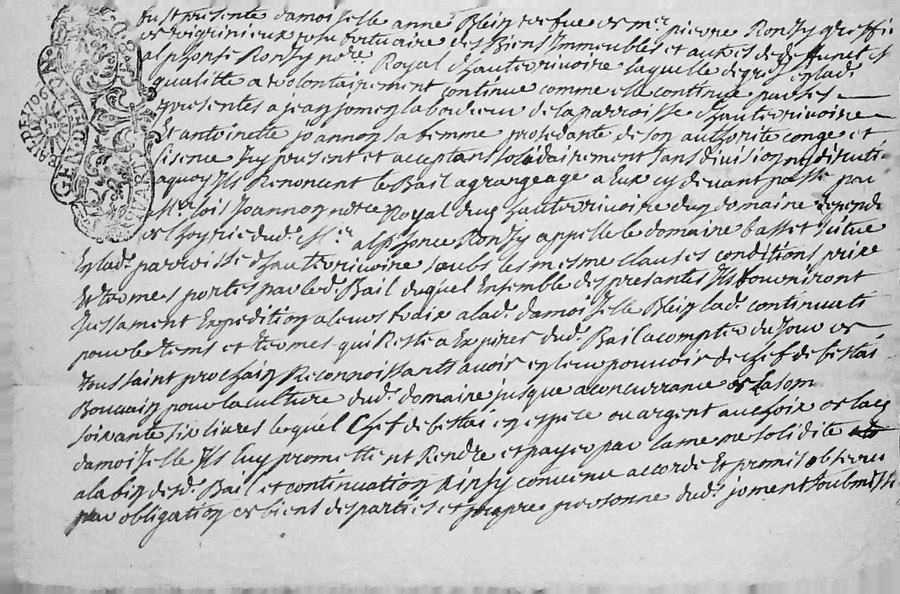 fust presente damoiselle anne Blein vefue de mer pierre Ronzy greffie
de Grigrinieux usufructuaire des Biens Immeubles et autres de deffunct
alphonse Ronzy notre Royal dhauterivoire laquelle de gre en lad.
qualitte a volontairement continue comme elle continue par ses
presentes a jean jomen laboureur de la parroisse dhauterivoire
Et antoinette joannon sa femme procedante de son authorite conge et
lisence Icy present et acceptans solidairement sans division ny discuti
aquoy Ils Renoncent le Bail a grangeage a Eux cy devant passe par
Me lois Joannon notre Royal dud. hauterivoire dun domaine depend
de lhoyrie dud. Me alphonce Ronzy appelle le domaine basset situe
En lad. parroisse dhauterivoire soubs les mesme clauses conditions prix
Et termes portes par led. Bail duquel Ensemble des presantes Ils fourniront
Incessament Expedition a leurs fraix a lad. damoiselle Blein lad. continuati
pour le tems et termes qui Reste a Expirer dud. Bail a compter du Jour de
toussaint prochain Reconnoissants avoir en leur pouvoir de chef de bestai
Bouvain pour la culture dud. domaine jusque a concurrance de la som
soixante six livres lequel Chef de bestai en espece ou argent au choix de lad.
damoiselle Ils luy promettent Rendre et payer par la mesme solidite
a la fin dud. Bail et continuation Ainsy convenu accorde Et promis observer
par obligation de biens des parties et propre personne dud. joment soubmissi
GEN BAIL DES 1705